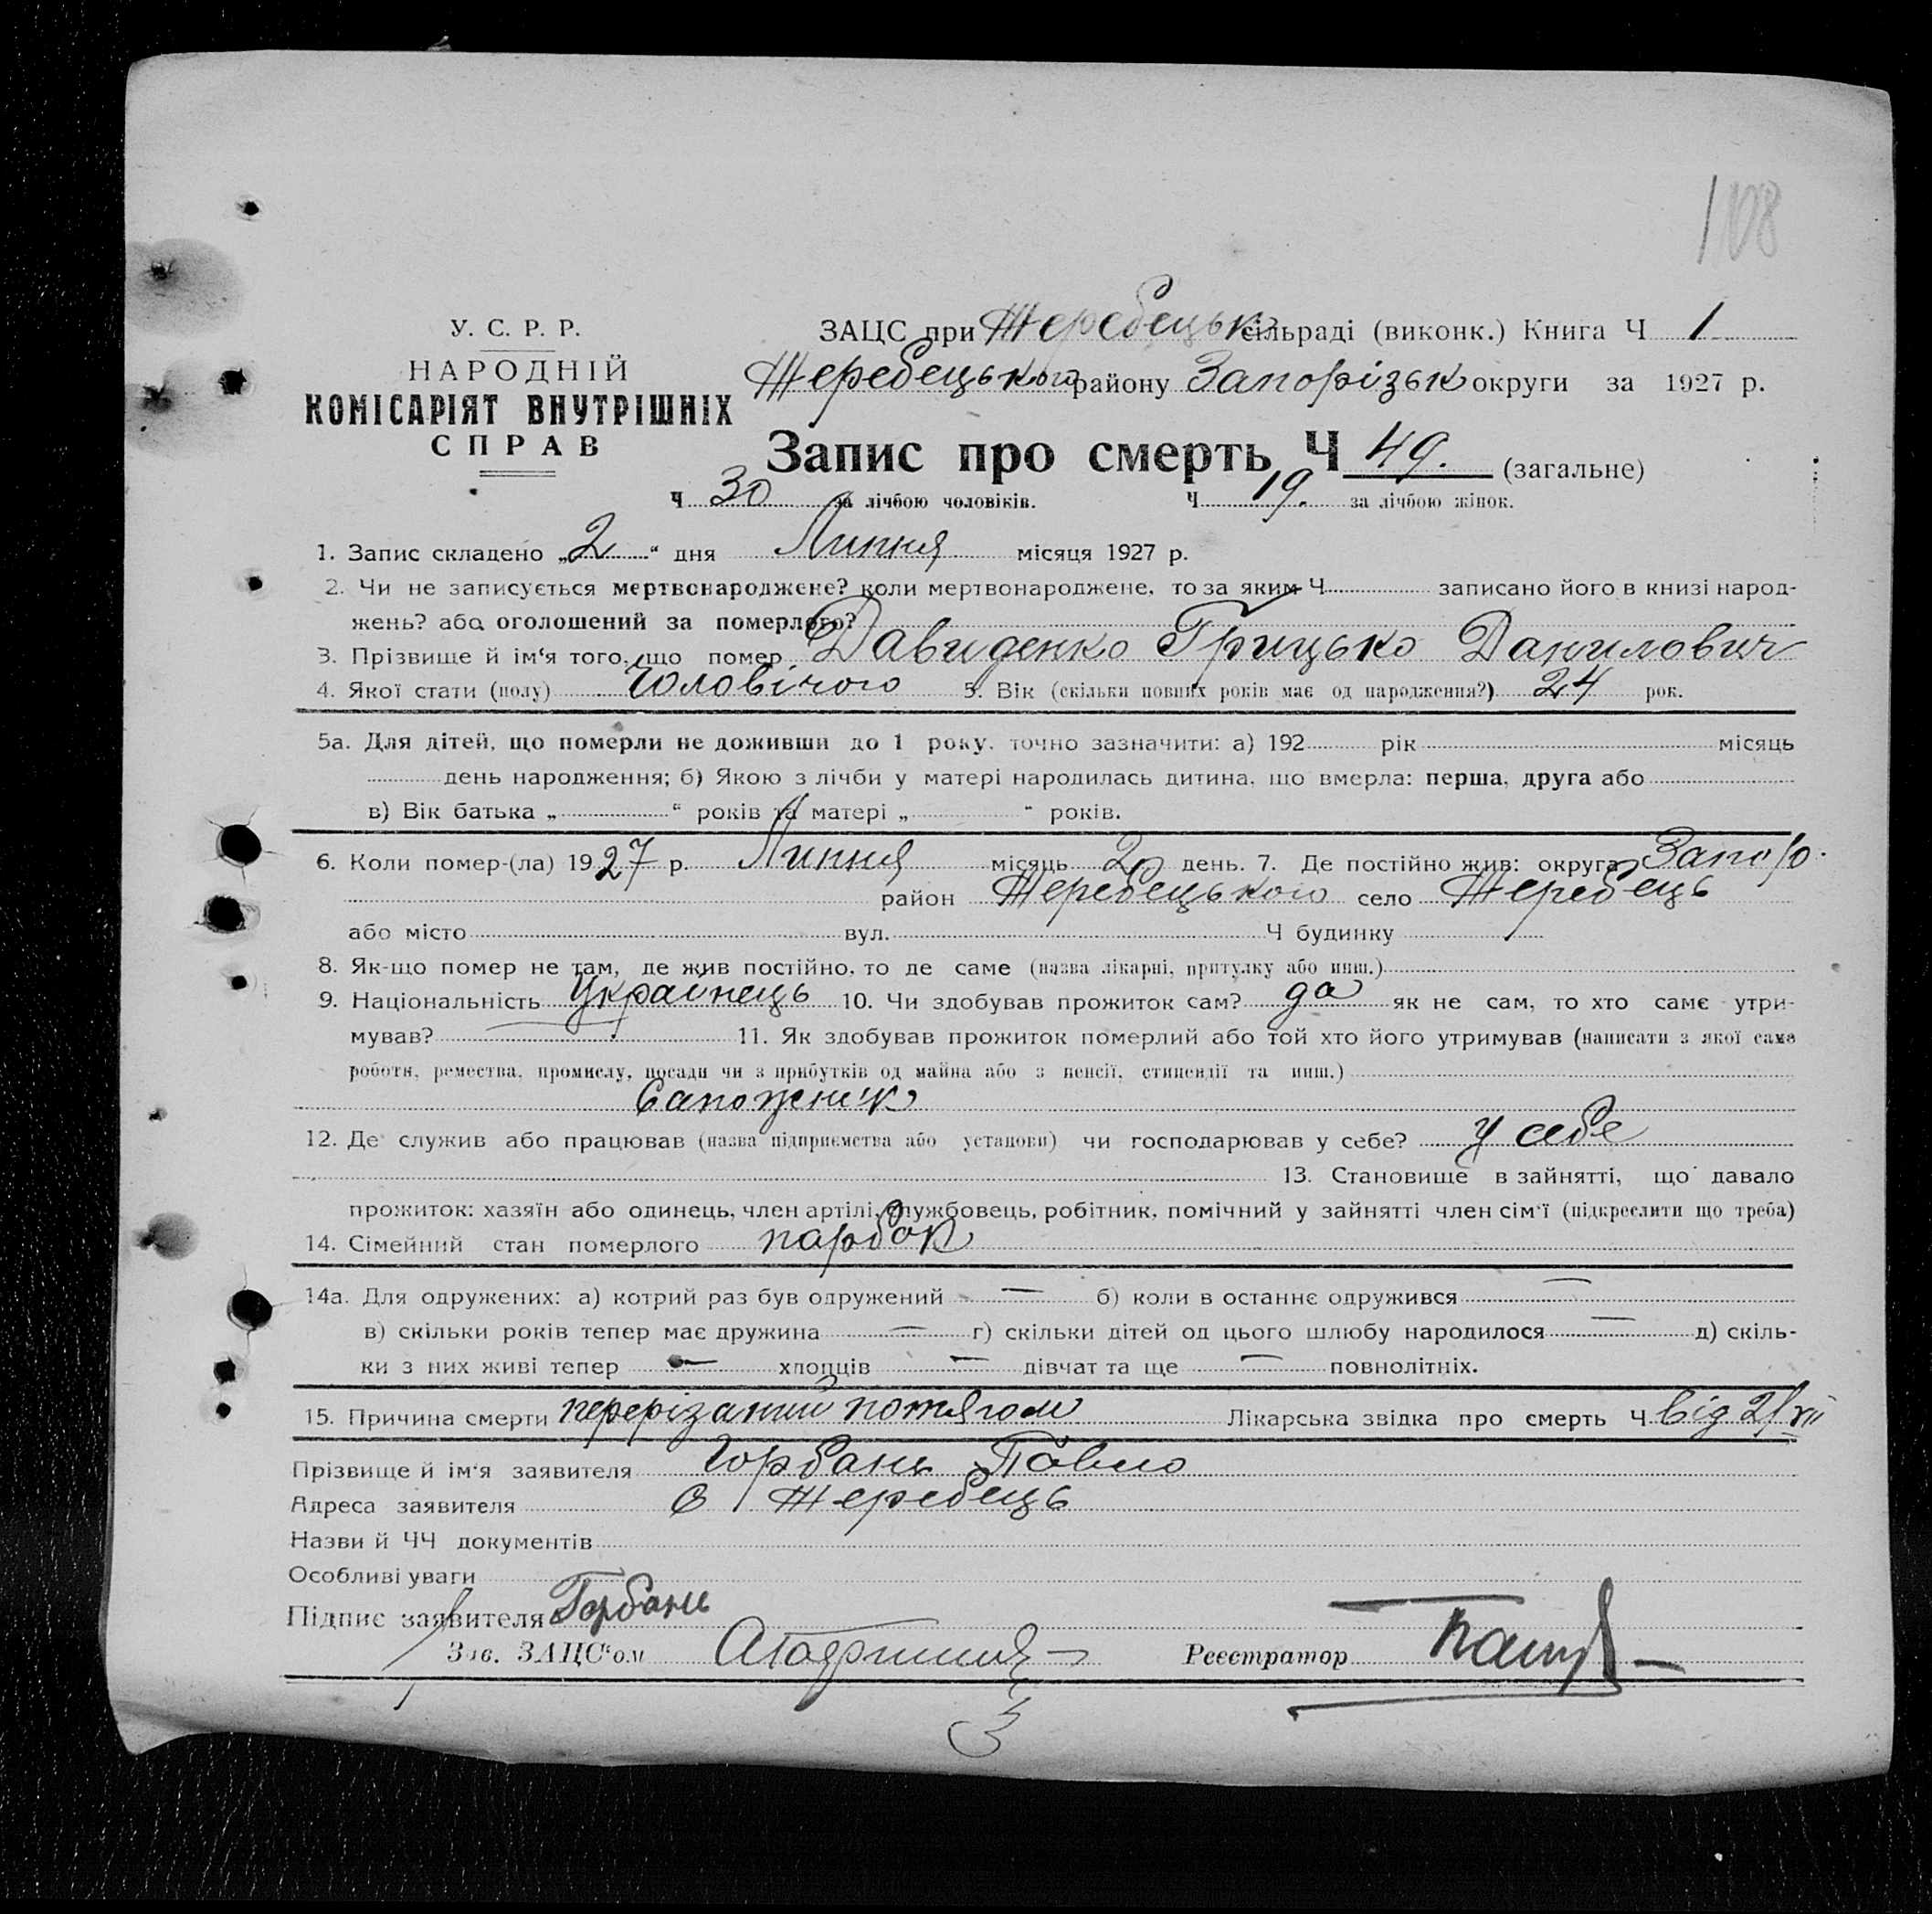 108
У. С. Р. Р.
НАРОДНІЙ
КОМІСАРІЯТ ВНУТРІШНІХ
СПРАВ
ЗАЦС при Жеребецьк сільраді (виконк.) Книга Ч 1
Жеребецького району Запорізьк округи за 1927 р.
Запис про смерть Ч 49. (загальне)
Ч 30 за лічбою чоловіків. Ч 19. за лічбою жінок.
1. Запис складено „2“ дня Липня місяця 1927 р.
2. Чи не записується мертвонароджене? коли мертвонароджене, то за яким Ч записано його в книзі народ-
жень? або оголошений за померлого?
3. Прізвище й ім'я того, що помер Давиденко Грицько Данилович
4. Якої стати (полу) Чоловічого 5. Вік (скільки повних років має од народження?) 24 рок.
5а. Для дітей, що померли не доживши до 1 року, точно зазначити: а) 192 рік місяць
день народження; б) Якою з лічби у матері народилась дитина, що вмерла: перша, друга або
в) Вік батька „ “ років та матері „ “ років.
6. Коли помер-(ла) 1927 р. Липня місяць 2 день. 7. Де постійно жив: округа Запор.
район Жеребецького село Жеребець
або місто вул. Ч будинку
8. Як-що помер не там, де жив постійно, то де саме (назва лікарні, притулку або инш.)
9. Національність Українець 10. Чи здобував прожиток сам? да як не сам, то хто саме утри-
мував? 11. Як здобував прожиток померлий або той хто його утримував (написати з якої саме
роботи, ремества, промислу, посади чи з прибутків од майна або з пенсії, стипендії та инш.)
Сапожник
12. Де служив або працював (назва підприємства або установи) чи господарював у себе? у себе
13. Становище в зайнятті, що давало
прожиток: хазяїн або одинець, член артілі, службовець, робітник, помічний у зайнятті член сім'ї (підкреслити що треба)
14. Сімейний стан померлого парубок
14а. Для одружених: а) котрий раз був одружений — б) коли в останнє одружився —
в) скільки років тепер має дружина — г) скільки дітей од цього шлюбу народилося — д) скіль-
ки з них живі тепер — хлопців — дівчат та ще — повнолітніх.
15. Причина смерти перерізаний потягом Лікарська звідка про смерть Ч від 2/VII
Прізвище й ім'я заявителя Горбань Павло
Адреса заявителя с Жеребець
Назви й ЧЧ документів
Особливі уваги
Підпис заявителя Горбань
Зав. ЗАЦС'ом
Реєстратор